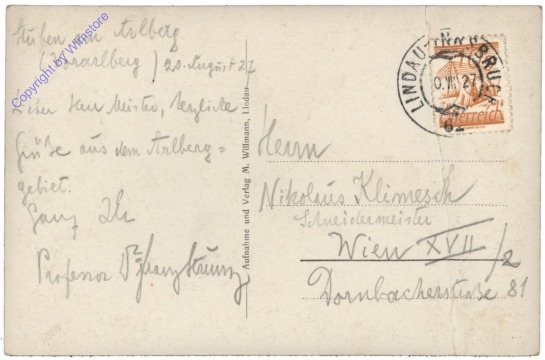 Stuben am Arlberg
(Vorarlberg) 20. August 27
Lieber Herr Meister, herzliche
Grüße aus dem Arlberg=
gebiet.
Ganz Ihr
Professor Dr Franz
Aufnahme und Verlag M. Willmann, Lindau
LINDAU-INNSBRUCK
27
62
Österreich
Herrn
Nikolaus Klimesch
Schneidermeister
Wien XVII/2
Dornbacherstraße 81
Copyright by Winstore